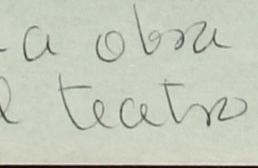 a obra
teatro